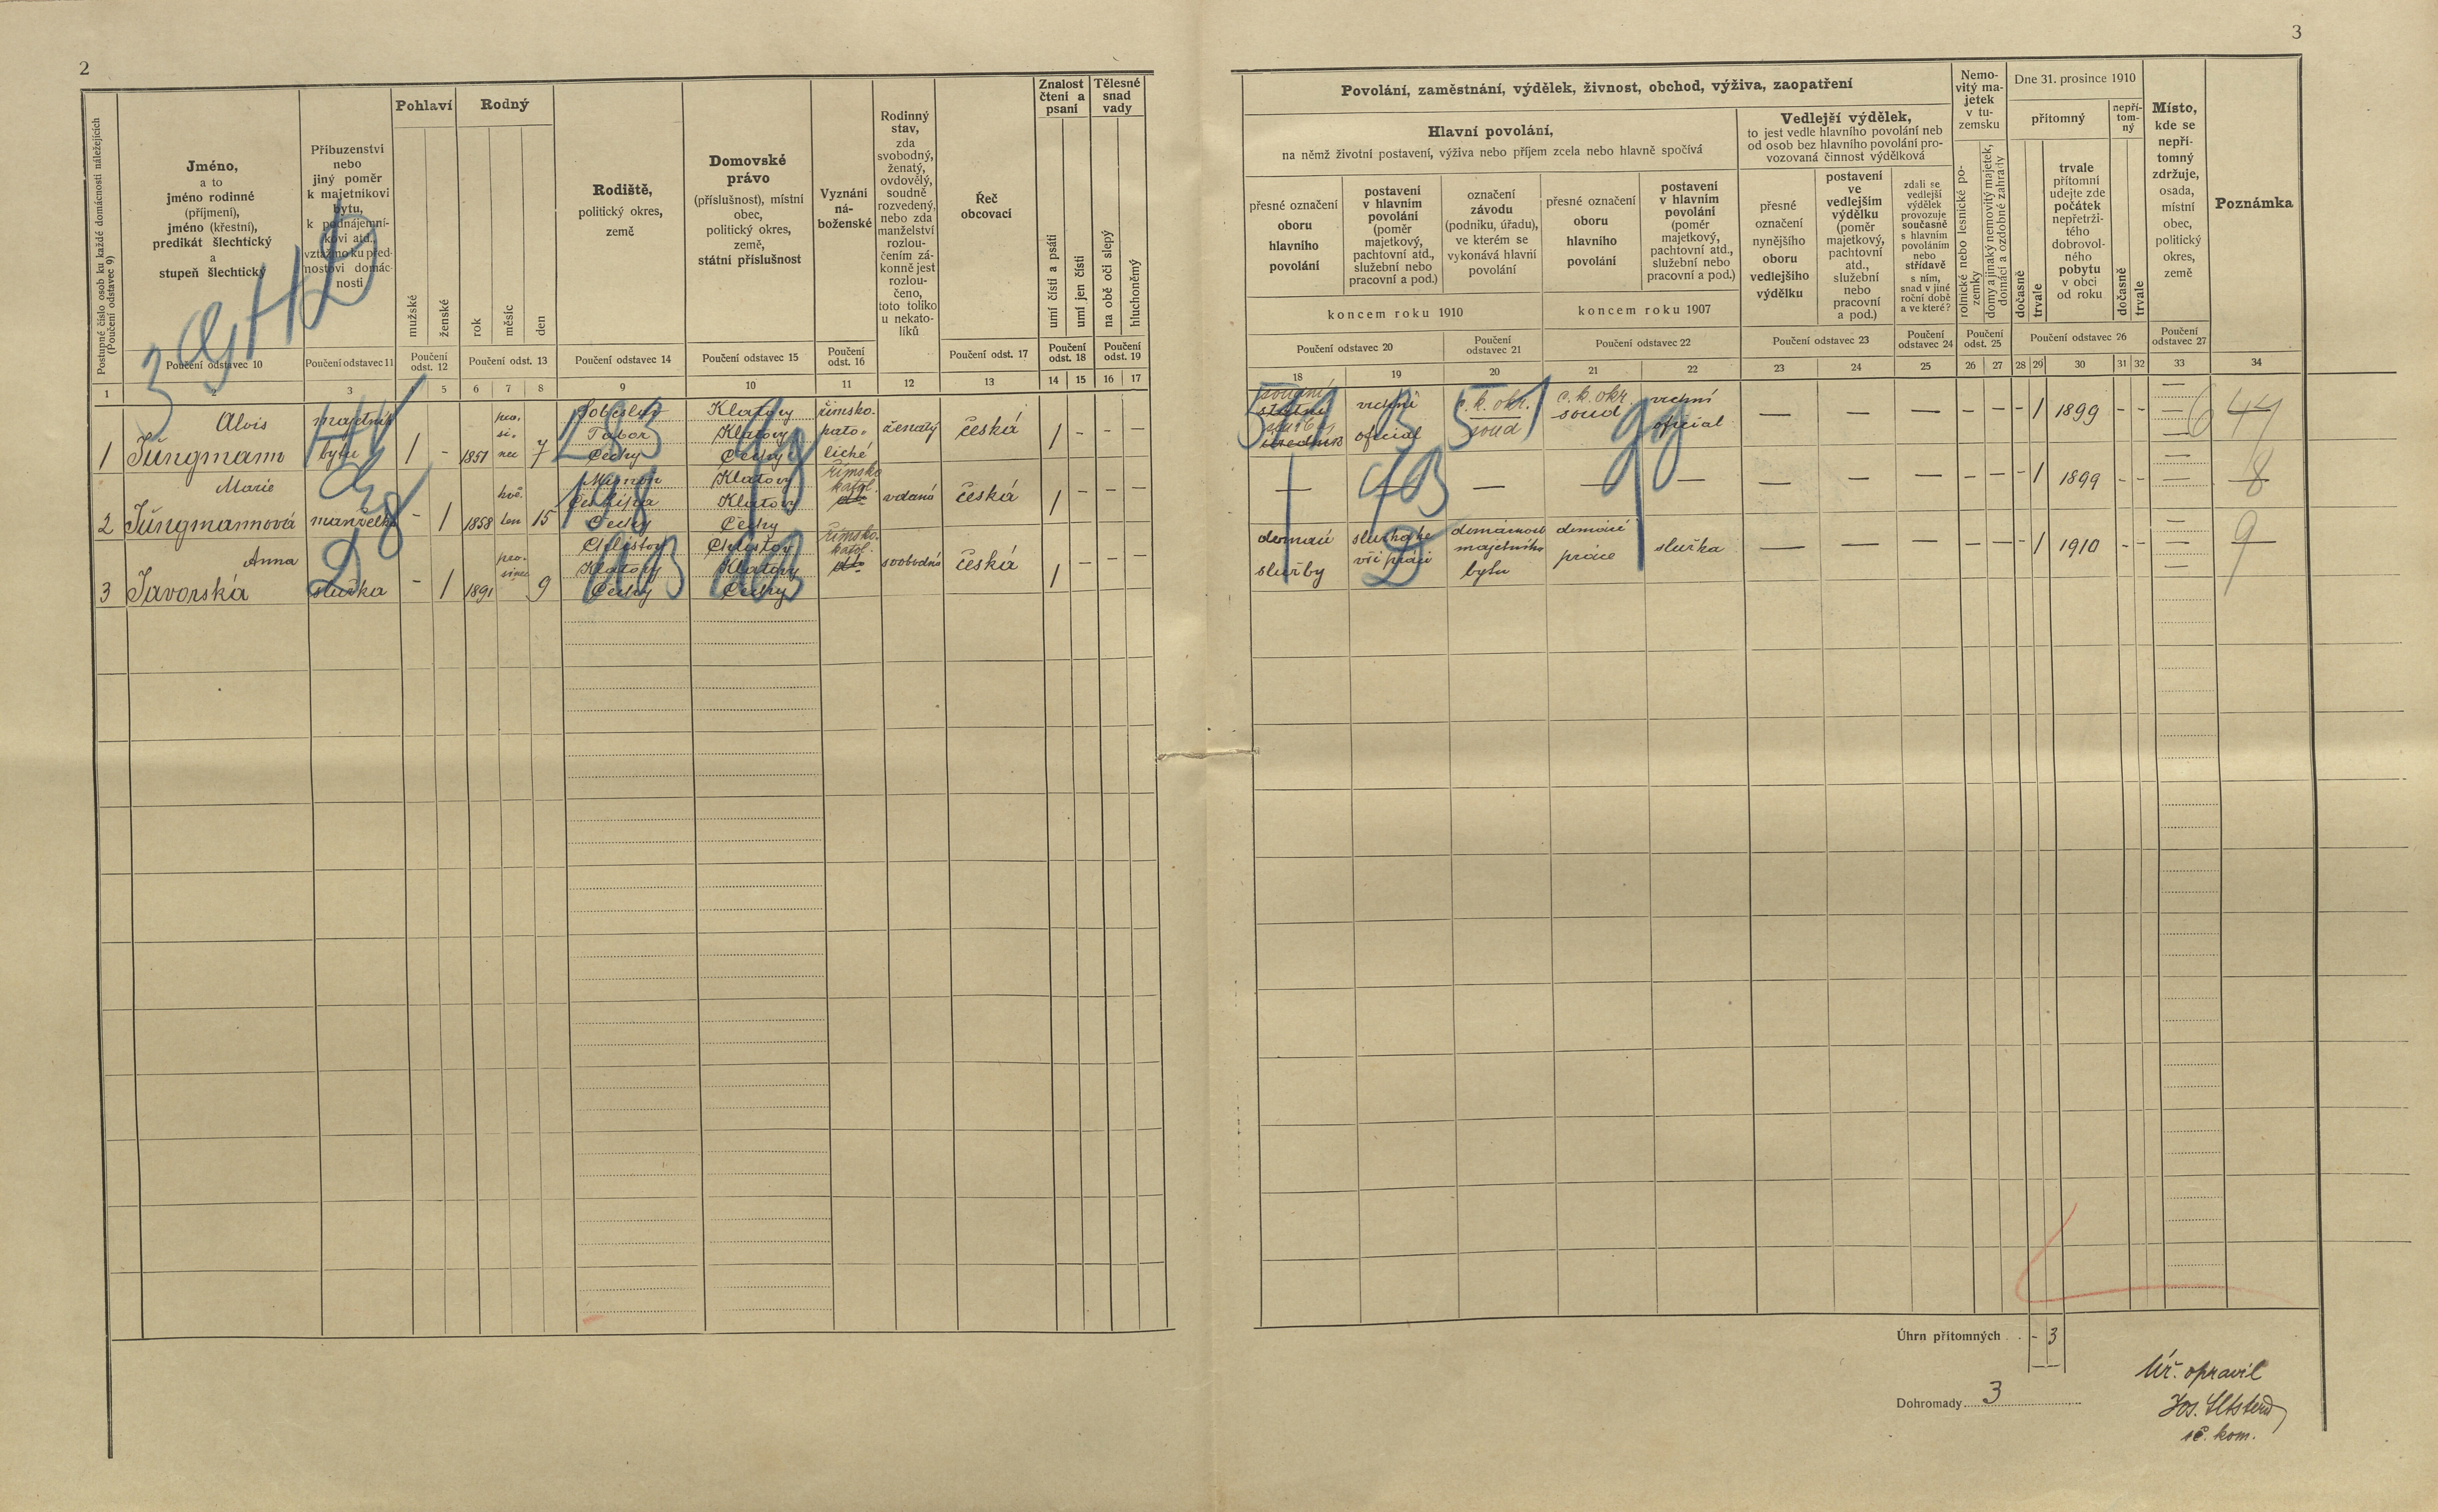 2
3
Postupné číslo osob ku každé domácnosti náležejících
(Poučení odstavec 9)
Jméno,
a to
jméno rodinné
(příjmení),
jméno (křestní),
predikát šlechtický
a
stupeň šlechtický
Poučení odstavec 10
Příbuzenství
nebo
jiný poměr
k majetníkovi
bytu,
k podnájemní-
kovi atd.,
vztažmo ku před-
nostovi domác-
nosti
Poučení odstavec 11
Pohlaví
mužské
ženské
Poučení
odst. 12
Rodný
rok
měsíc
den
Poučení odst. 13
Rodiště,
politický okres,
země
Poučení odstavec 14
Domovské
právo
(příslušnost), místní
obec,
politický okres,
země,
státní příslušnost
Poučení odstavec 15
Vyznání
ná-
boženské
Poučení
odst. 16
Rodinný
stav,
zda
svobodný,
ženatý,
ovdovělý,
soudně
rozvedený,
nebo zda
manželství
rozlou-
čením zá-
konně jest
rozlou-
čeno,
toto toliko
u nekato-
líků
Řeč
obcovací
Poučení odst. 17
Znalost
čtení a
psaní
umí čísti a psáti
umí jen čísti
Poučení
odst. 18
Tělesné
snad
vady
na obě oči slepý
hluchoněmý
Poučení
odst. 19
1 2 3 5 6 7 8 9 10 11 12 13 14 15 16 17
Povolání, zaměstnání, výdělek, živnost, obchod, výživa, zaopatření
Hlavní povolání,
na němž životní postavení, výživa nebo příjem zcela nebo hlavně spočívá
přesné označení
oboru
hlavního
povolání
postavení
v hlavním
povolání
(poměr
majetkový,
pachtovní atd.,
služební nebo
pracovní a pod.)
označení
závodu
(podniku, úřadu),
ve kterém se
vykonává hlavní
povolání
koncem roku 1910
přesné označení
oboru
hlavního
povolání
postavení
v hlavním
povolání
(poměr
majetkový,
pachtovní atd.,
služební nebo
pracovní a pod.)
koncem roku 1907
Poučení odstavec 20
Poučení
odstavec 21
Poučení odstavec 22
Vedlejší výdělek,
to jest vedle hlavního povolání neb
od osob bez hlavního povolání pro-
vozovaná činnost výdělková
přesné
označení
nynějšího
oboru
vedlejšího
výdělku
postavení
ve
vedlejším
výdělku
(poměr
majetkový,
pachtovní
atd.,
služební
nebo
pracovní
a pod.)
zdali se
vedlejší
výdělek
provozuje
současně
s hlavním
povoláním
nebo
střídavě
s ním,
snad v jiné
roční době
a ve které?
Poučení odstavec 23
Poučení
odstavec 24
Nemo-
vitý ma-
jetek
v tu-
zemsku
rolnické nebo lesnické po-
zemky
domy a jinaký nemovitý majetek,
domácí a ozdobné zahrady
Poučení
odst. 25
Dne 31. prosince 1910
přítomný
nepří-
tom-
ný
dočasně
trvale
trvale
přítomní
udejte zde
počátek
nepřetrži-
tého
dobrovol-
ného
pobytu
v obci
od roku
dočasně
trvale
Poučení odstavec 26
Místo,
kde se
nepří-
tomný
zdržuje,
osada,
místní
obec,
politický
okres,
země
Poučení
odstavec 27
Poznámka
18 19 20 21 22 23 24 25 26 27 28 29 30 31 32 33 34
1
Alois
Jungmann
majetník
bytu
1 - 1851
pro.
si.
nec
7
Soběslav
Tábor
Čechy
Klatovy
Klatovy
Čechy
římsko.
kato.
lické
ženatý
česká
1 - - -
soudní
vrchní
oficiál
c. k. okr.
soud
c. k. okr.
soud
vrchní
oficiál
— — — - - - 1 1899 - -
44
2
Marie
Jungmannová
manželka
- 1 1858
15
Mimoň
Čechy
Klatovy
Klatovy
Čechy
římsko
katol.
vdaná
česká
1 - - -
— — — — — — — — - - - 1 1899 - - —
8
3
Anna
Javorská
služka
- 1 1891
pro-
sinec
9
Chlistov
Klatovy
Čechy
Chlistov
Klatovy
Čechy
římsko.
katol.
svobodná
česká
1 - - -
domácí
služby
domácnost
majetníka
bytu
domácí
práce
služka
— — — - - - 1 1910 - -
9
Úhrn přítomných . . - 3
Dohromady 3
Úř. opravil
sč. kom.